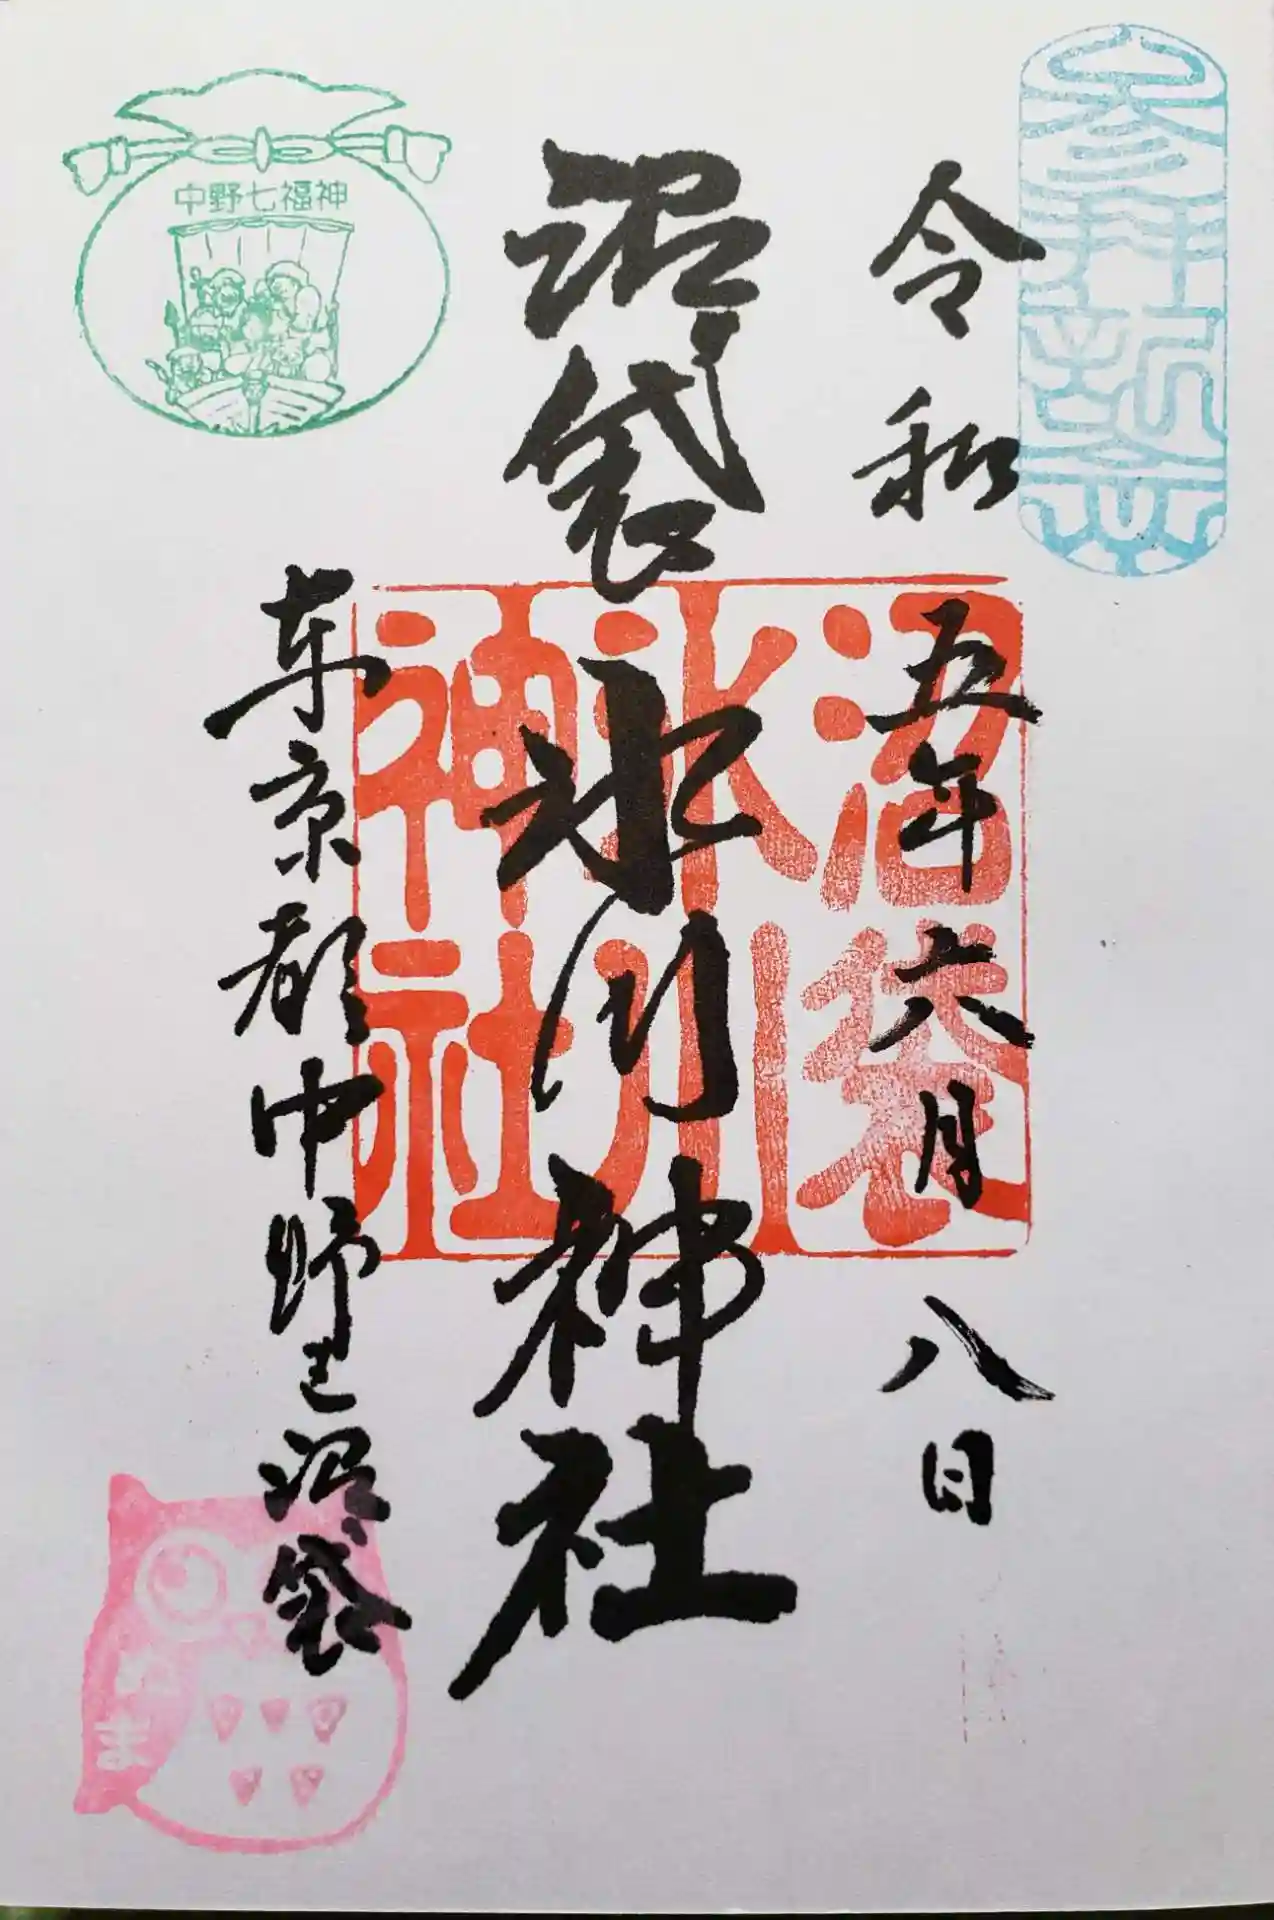 参拝祈念
令和五年六月八日
沼袋氷川神社
沼袋
氷川
神社
中野七福神
東京都中野区沼袋
ぬま